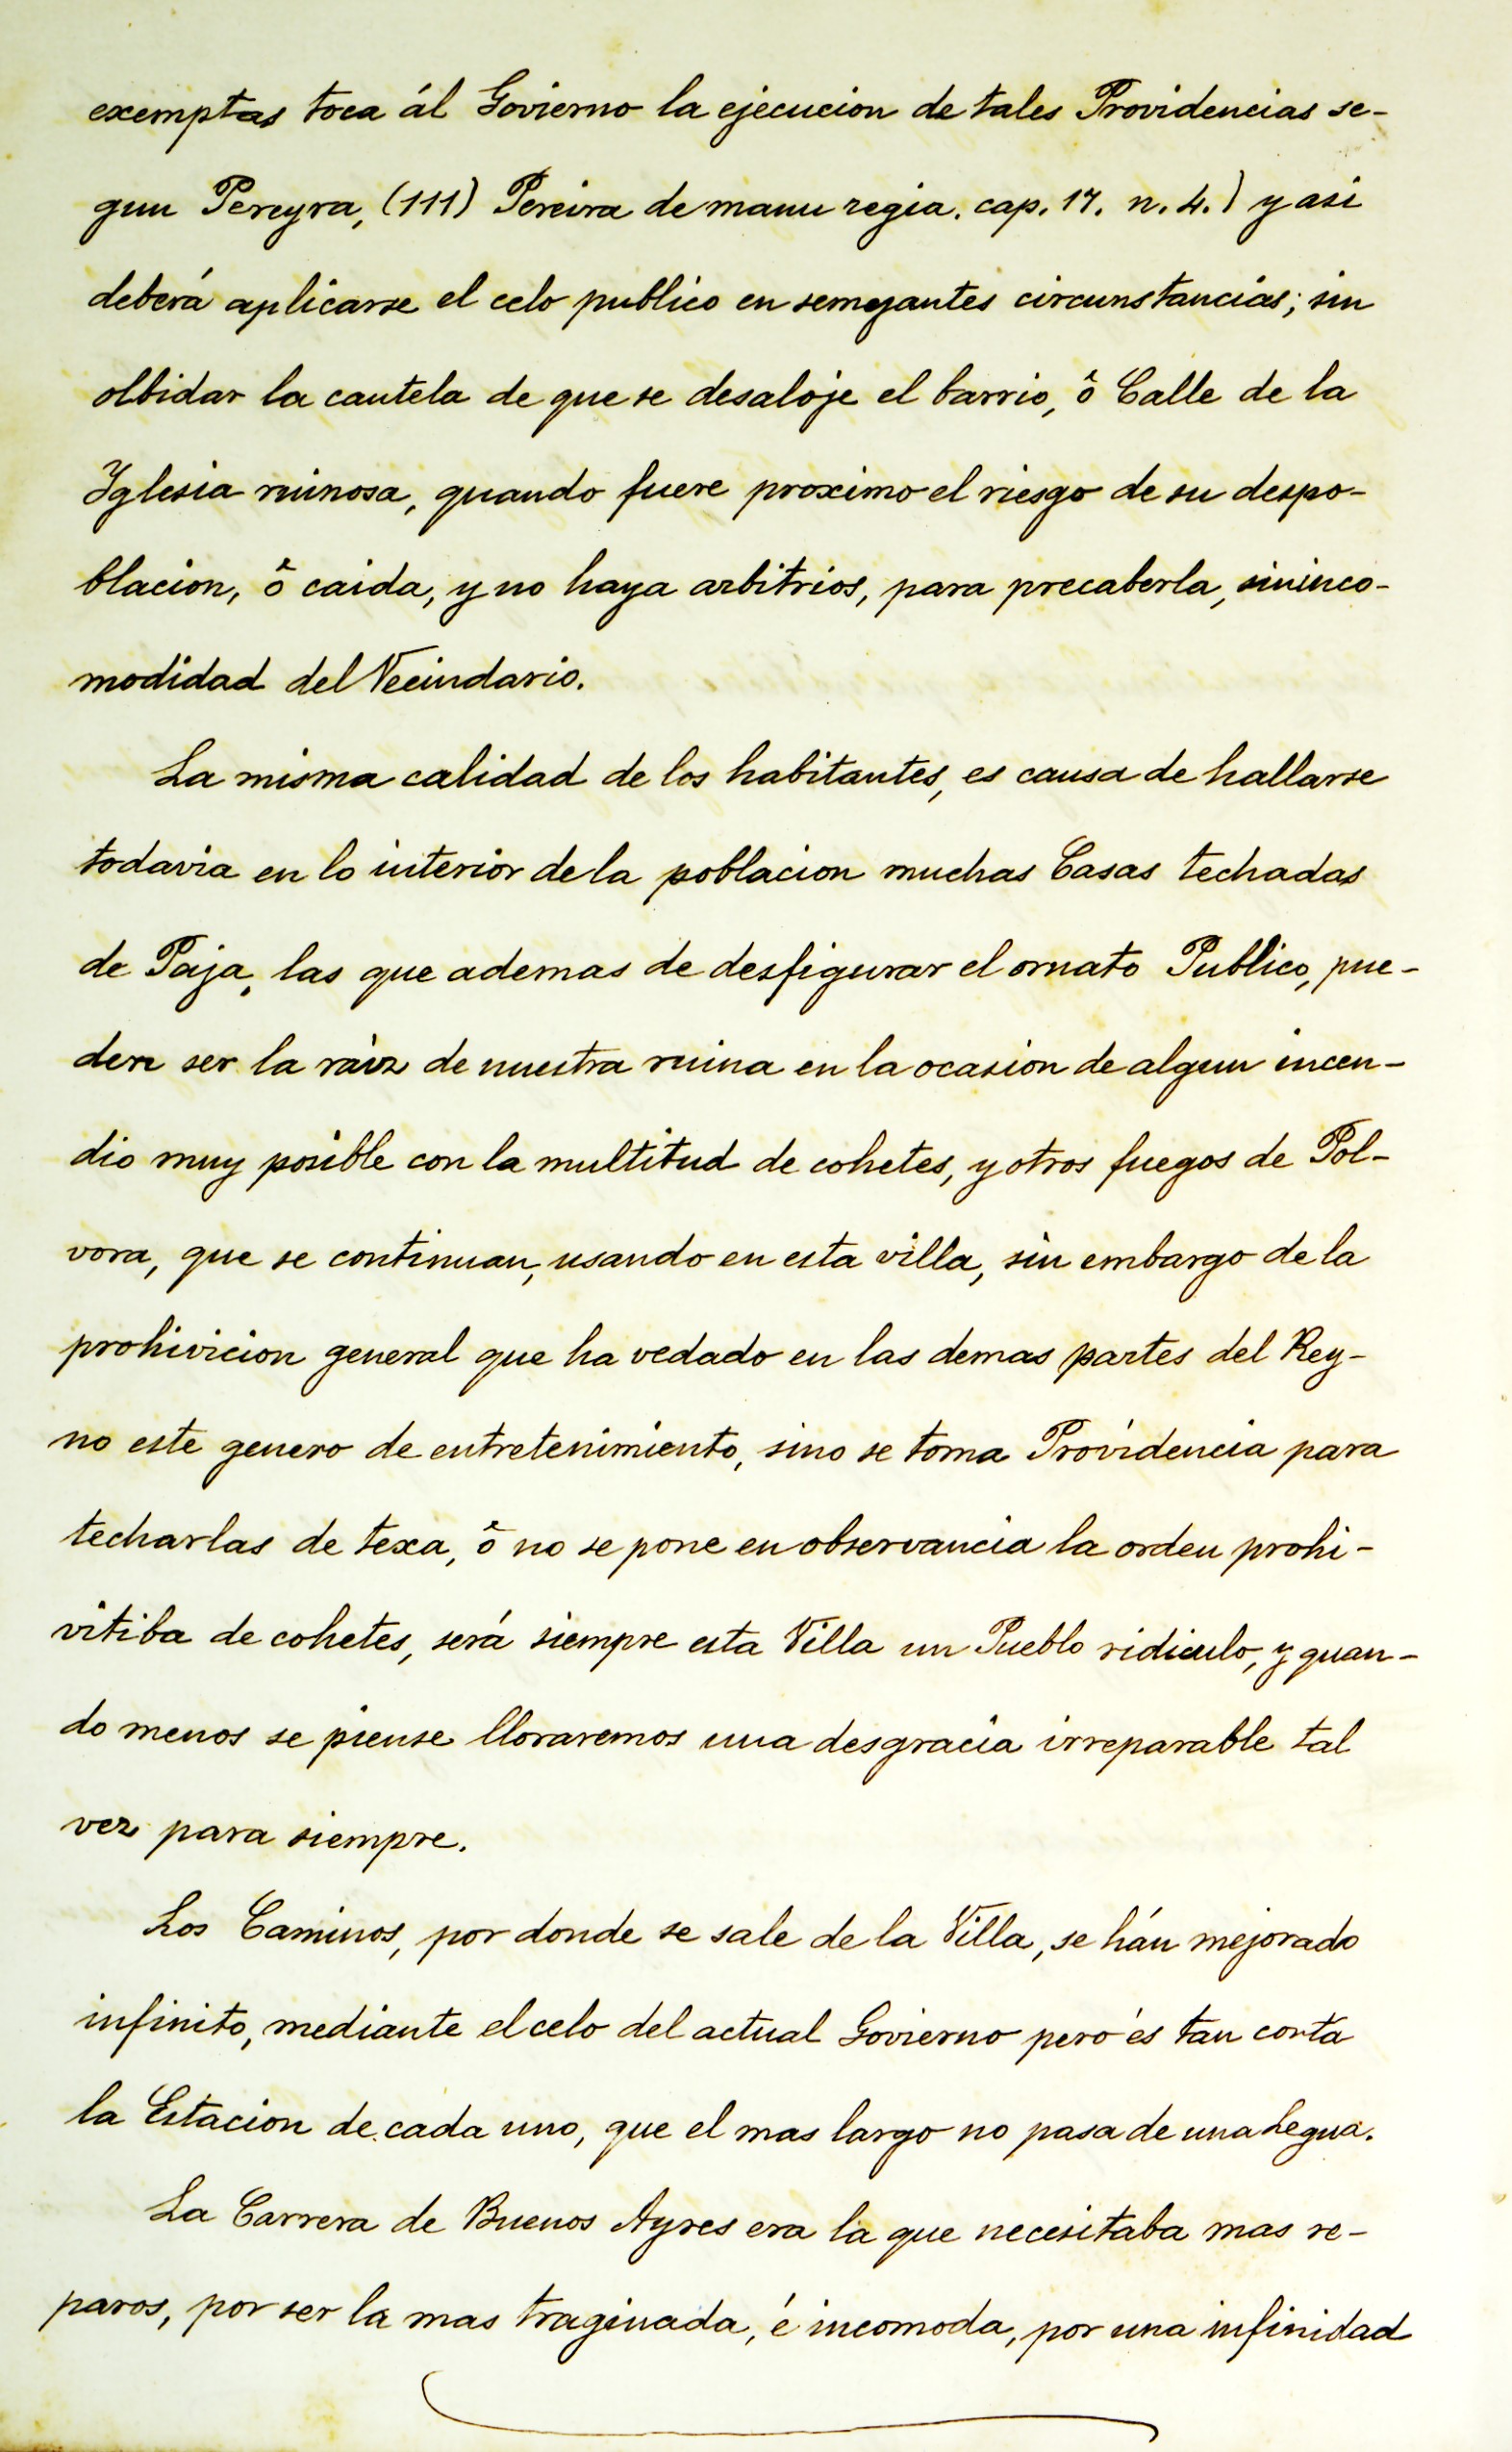 exemptas toca ál Govierno la ejecucion de tales Providencias se-
gun Pereyra, (111) Pereira de manu regia. cap. 17. n. 4.) y asi
deberá aplicarse el celo publico en semejantes circunstancias; sin
olbidar la cautela de que se desaloje el barrio, ô Calle de la
Yglesia ruinosa, quando fuere proximo el riesgo de su despo-
blacion, ô caida, y no haya arbitrios, para precaberla, sin inco-
modidad del Vecindario.
La misma calidad de los habitantes, es causa de hallarse
todavia en lo interior de la poblacion muchas Casas techadas
de Paja, las que ademas de desfigurar el ornato Publico, pue-
den ser la ràiz de nuestra ruina en la ocasion de algun incen-
dio muy posible con la multitud de cohetes, y otros fuegos de Pol-
vora, que se continuan, usando en esta villa, sin embargo de la
prohivicion general que ha vedado en las demas partes del Rey-
no este genero de entretenimiento, sino se toma Providencia para
techarlas de texa, ô no se pone en observancia la orden prohi-
vitiba de cohetes, será siempre esta Villa un Pueblo ridiculo, y quan-
do menos se piense lloraremos una desgracia irreparable tal
vez para siempre.
Los Caminos, por donde se sale de la Villa, se hán mejorado
infinito, mediante el celo del actual Govierno peró és tan corta
la Estacion de cada uno, que el mas largo no pasa de una Legua.
La Carrera de Buenos Ayres era la que necesitaba mas re-
paros, por ser la mas traginada, é incomoda, por una infinidad